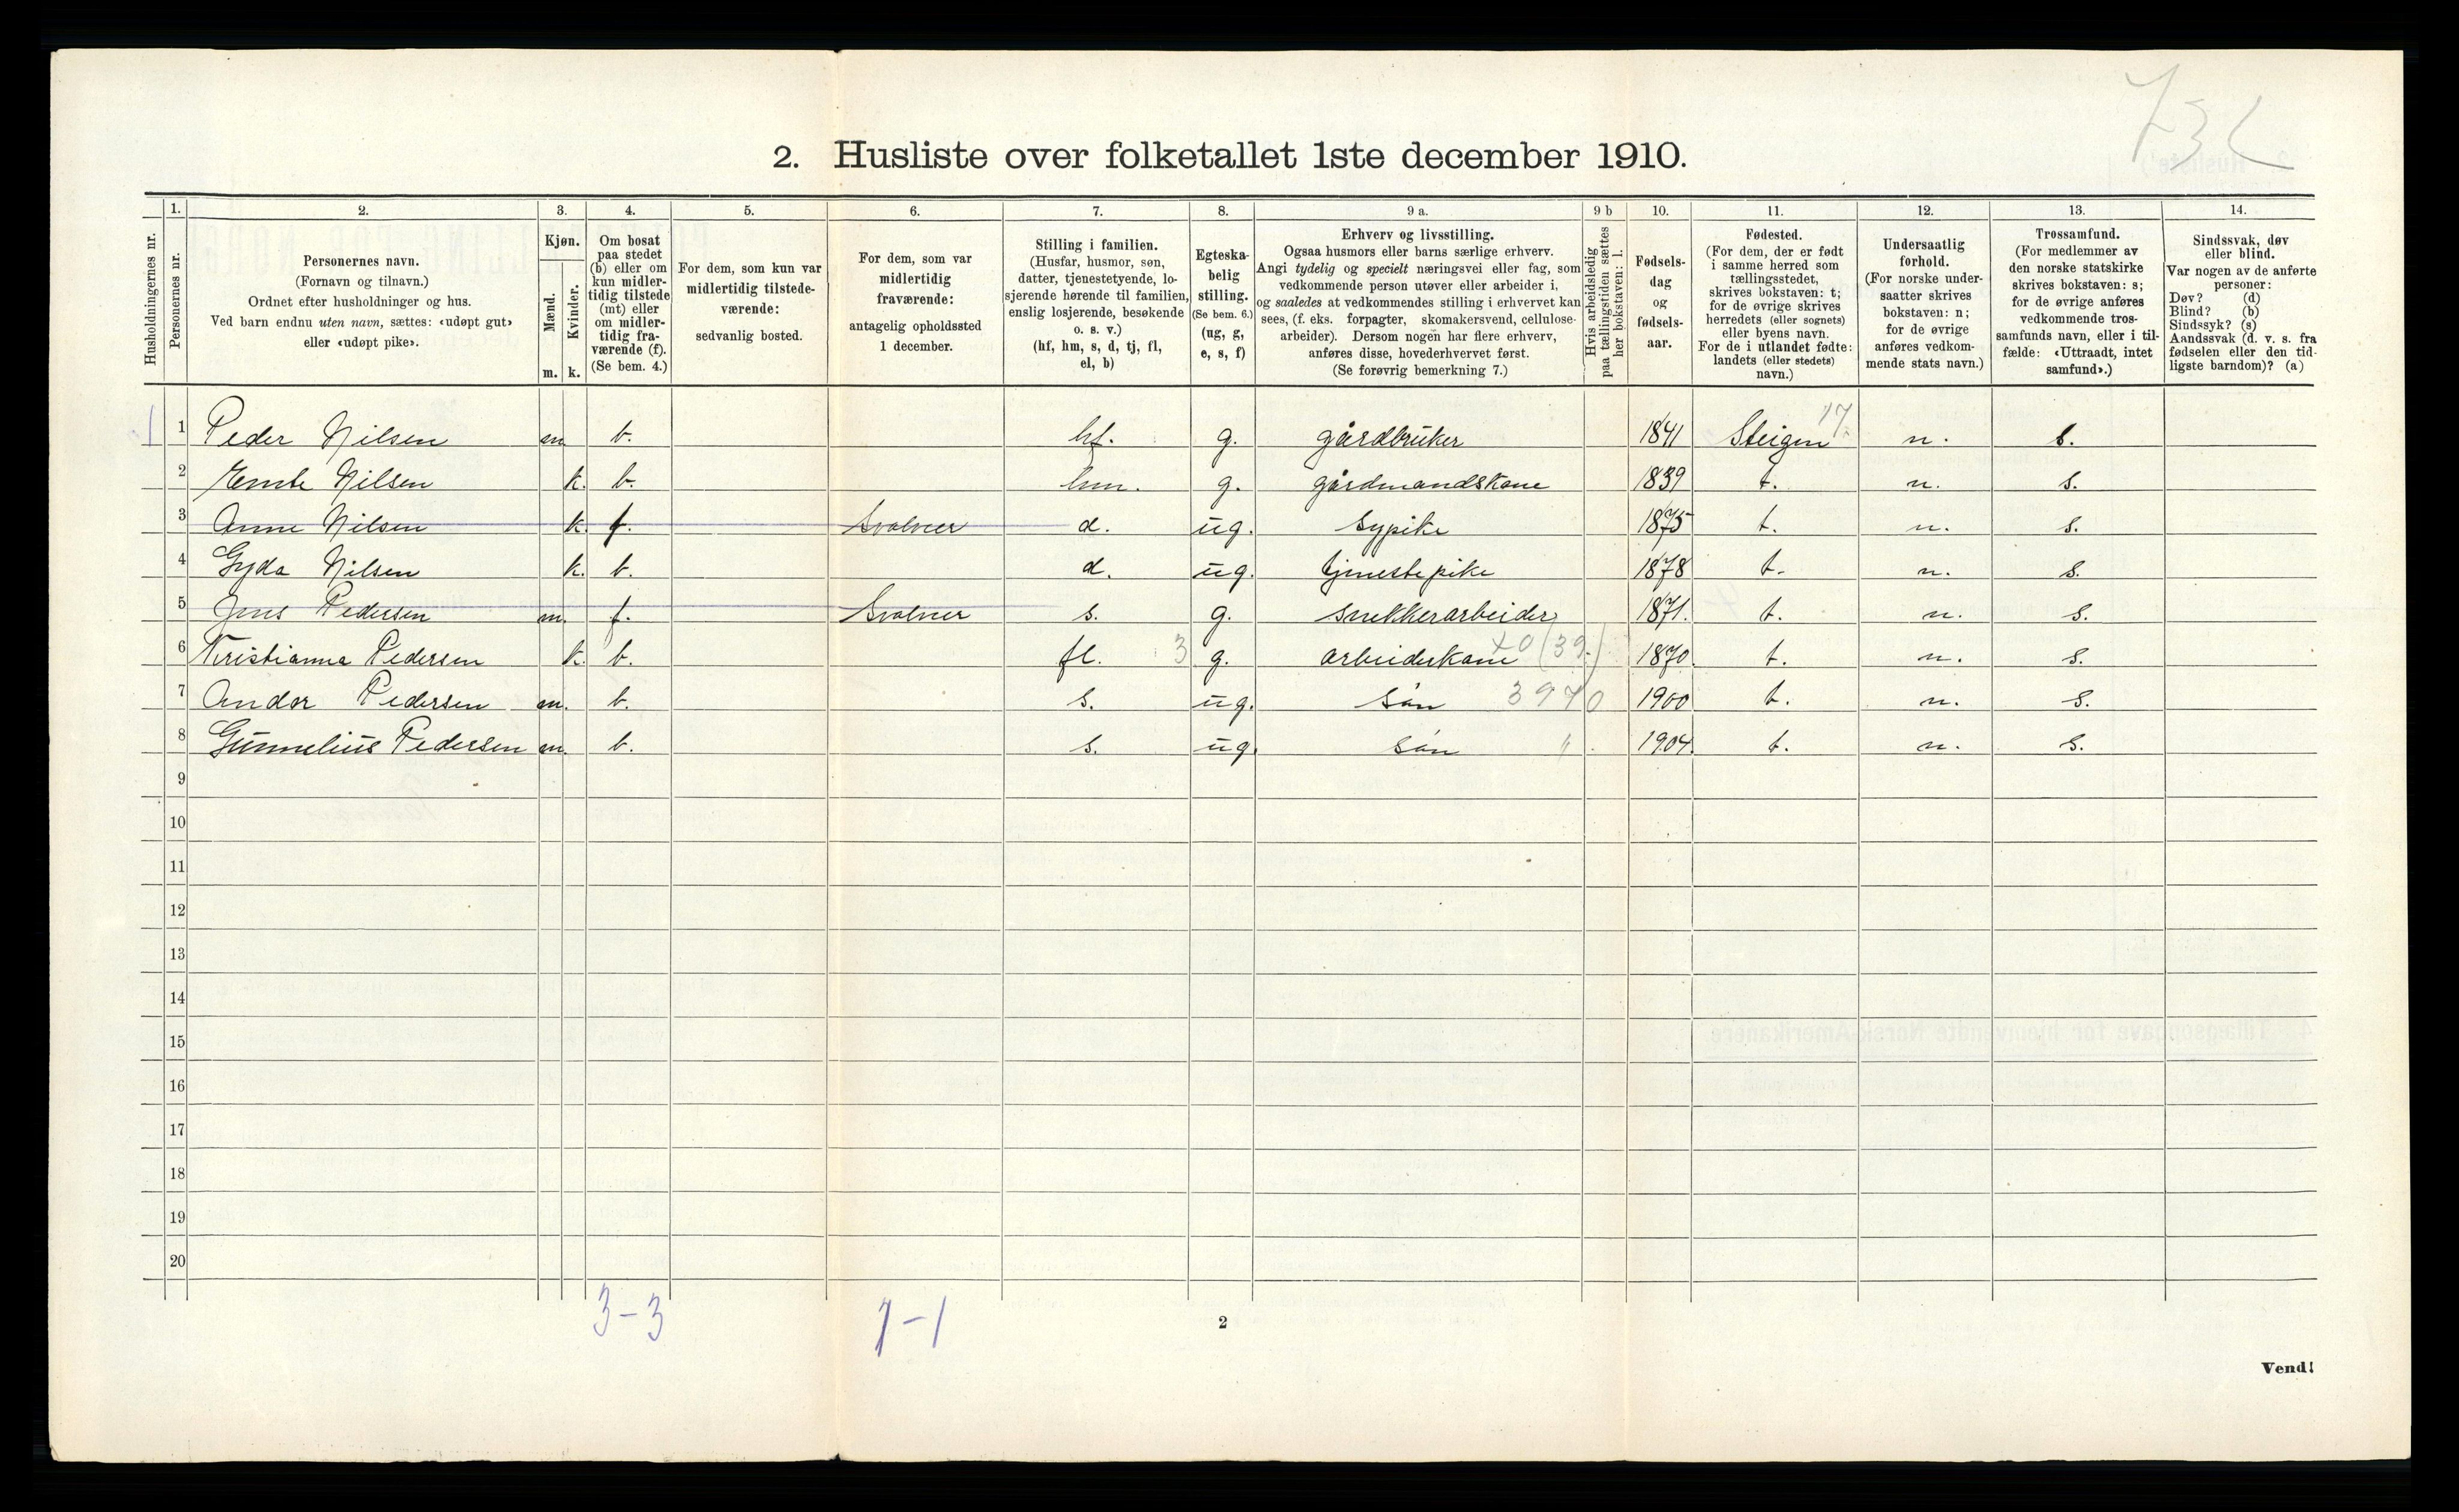 73
2. Husliste over folketallet 1ste december 1910.
1. 2. 3. 4. 5. 6. 7. 8. 9 a. 9 b 10. 11. 12. 13. 14.
Husholdningernes nr.
Personernes nr.
Personernes navn.
(Fornavn og tilnavn.)
Ordnet efter husholdninger og hus.
Ved barn endnu uten navn, sættes: «udøpt gut»
eller «udøpt pike».
Kjøn.
Mænd.
Kvinder.
m. k.
Om bosat
paa stedet
(b) eller om
kun midler-
tidig tilstede
(mt) eller
om midler-
tidig fra-
værende (f).
(Se bem. 4.)
For dem, som kun var
midlertidig tilstede-
værende:
sedvanlig bosted.
For dem, som var
midlertidig
fraværende:
antagelig opholdssted
1 december.
Stilling i familien.
(Husfar, husmor, søn,
datter, tjenestetyende, lo-
sjerende hørende til familien,
enslig losjerende, besøkende
o. s. v.)
(hf, hm, s, d, tj, fl,
el, b)
Egteska-
belig
stilling.
(Se bem. 6.)
(ug, g,
e, s, f)
Erhverv og livsstilling.
Ogsaa husmors eller barns særlige erhverv.
Angi tydelig og specielt næringsvei eller fag, som
vedkommende person utøver eller arbeider i,
og saaledes at vedkommendes stilling i erhvervet kan
sees, (f. eks. forpagter, skomakersvend, cellulose-
arbeider). Dersom nogen har flere erhverv,
anføres disse, hovederhvervet først.
(Se forøvrig bemerkning 7.)
Hvis arbeidsledig
paa tællingstiden sættes
her bokstaven: l.
Fødsels-
dag
og
fødsels-
aar.
Fødested.
(For dem, der er født
i samme herred som
tællingsstedet,
skrives bokstaven: t;
for de øvrige skrives
herredets (eller sognets)
eller byens navn.
For de i utlandet fødte:
landets (eller stedets)
navn.)
Undersaatlig
forhold.
(For norske under-
saatter skrives
bokstaven: n;
for de øvrige
anføres vedkom-
mende stats navn.)
Trossamfund.
(For medlemmer av
den norske statskirke
skrives bokstaven: s;
for de øvrige anføres
vedkommende tros-
samfunds navn, eller i til-
fælde: «Uttraadt, intet
samfund».)
Sindssvak, døv
eller blind.
Var nogen av de anførte
personer:
Døv? (d)
Blind? (b)
Sindssyk? (s)
Aandssvak (d. v. s. fra
fødselen eller den tid-
ligste barndom)? (a)
17
1 1 Peder Nilsen m b. hf. g. gårdbruker 1841 Steigen n. s.
2 Nilsen k. b. hm. g. gårdmandskone 1839 t. n. s.
3 Anne Nilsen k. f. Svolvær d. ug. sypike 1875 t. n. s.
4 Gyda Nilsen k. b. d. ug. tjenestepike 1878 t. n. s.
5 Jens Pedersen m. f. Svolvær s. g. snekkerarbeider 1871. t. n. s.
6 Kristianna Pedersen k. b. fl. 3 g. arbeiderkone 1870. t. n. s.
7 Andor Pedersen m. b. s. ug. søn 1900 t. n. s.
8 Gunnelius Pedersen m. b. s. ug. søn " 1904. t. n. s.
9
10
11
12
13
14
15
16
17
18
19
20
3-3 1-1
2
Vend!